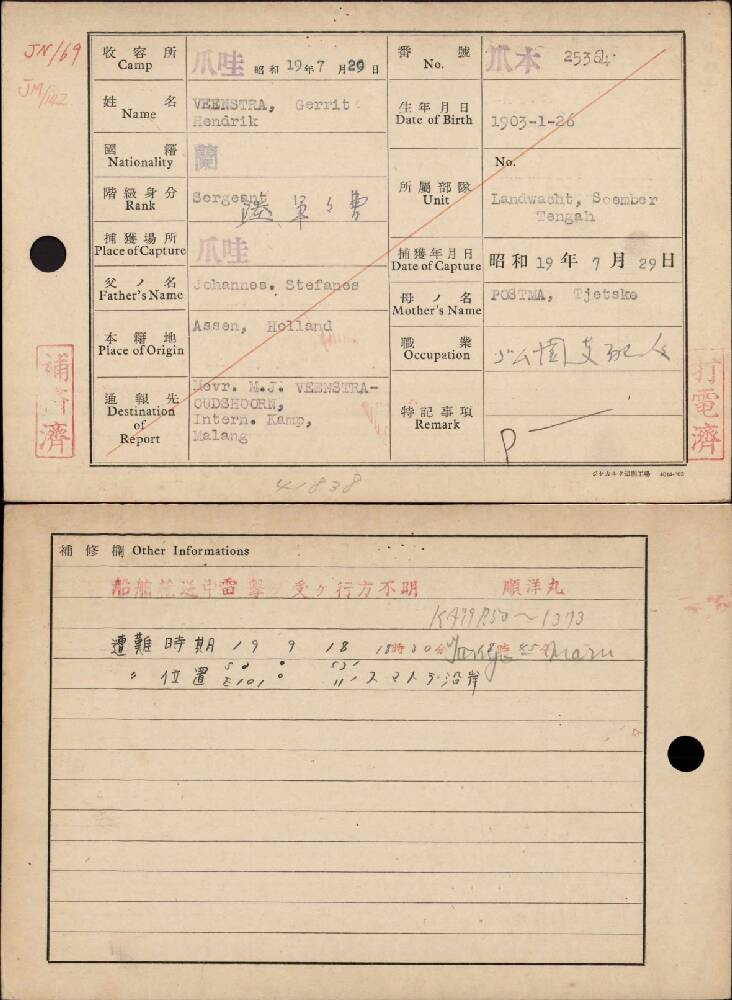 JN/69
JM/142
收容所 Camp 爪哇 昭和19年7月29日
番號 No. 爪本 25364
姓名 Name VEENSTRA, Gerrit
Hendrik
生年月日 Date of Birth 1903-1-26
國籍 Nationality 蘭
階級身分 Rank Sergeant 陸軍
所屬部隊 Unit No.
Landwacht, Soember
Tengah
捕獲場所 Place of Capture 爪哇
捕獲年月日 Date of Capture 昭和19年7月29日
父ノ名 Father's Name Johannes. Stefanos
母ノ名 Mother's Name POSTMA, Tjetske
本籍地 Place of Origin Assen, Holland
職業 Occupation ゴム園支配人
通報先 Destination of Report Mevr. M.J. VEENSTRA-
OUDSHOORN,
Intern. Kamp,
Malang
特記事項 Remark P
打電濟
41838
補修欄 Other Informations
船舶輸送中雷撃ヲ受ケ行方不明 順洋丸
遭難時期 19 9 18
〃 位置 スマトラ沿岸